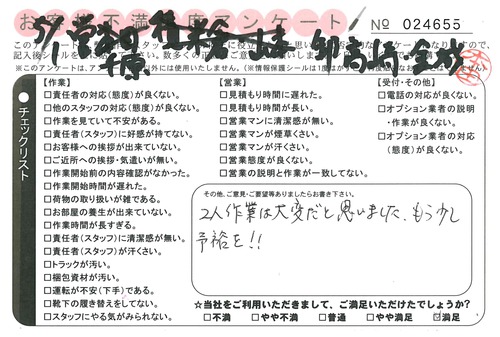 お客様不満足度アンケート
No 024655
5/1
チェックリスト
【作業】
□責任者の対応(態度)が良くない。
□他のスタッフの対応(態度)が良くない。
□作業を見ていて不安がある。
□責任者(スタッフ)に好感が持てない。
□お客様への挨拶が出来ていない。
□ご近所への挨拶・気遣いが無い。
□作業開始前の内容確認がなかった。
□作業開始時間が遅れた。
□荷物の取り扱いが雑である。
□お部屋の養生が出来ていない。
□作業時間が長すぎる。
□責任者(スタッフ)に清潔感が無い。
□責任者(スタッフ)が汗くさい。
□トラックが汚い。
□梱包資材が汚い。
□運転が不安(下手)である。
□靴下の履き替えをしてない。
□スタッフにやる気がみられない。
【営業】
□見積もり時間に遅れた。
□見積もり時間が長い。
□営業マンに清潔感が無い。
□営業マンが煙草くさい。
□営業マンが汗くさい。
□営業態度が良くない。
□営業の説明と作業が一致してない。
【受付・その他】
□電話の対応が良くない。
□オプション業者の説明
・作業が良くない。
□オプション業者の対応
(態度)が良くない。
その他、ご意見・ご要望等ありましたらお書き下さい。
2人作業は大変だと思いました、もう少し
予裕を!!
☆当社をご利用いただきまして、ご満足いただけたでしょうか?
□不満 □やや不満 □普通 □やや満足 ☑満足